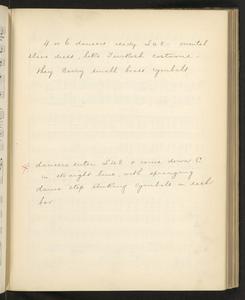 4 or 6 dancers ready L.U.E. oriental
dress, like Turkish costume.
They carry small brass cymbals
dancers enter L.U.E. & come down C.
in straight line, with springing
dance step striking cymbals on each
bar